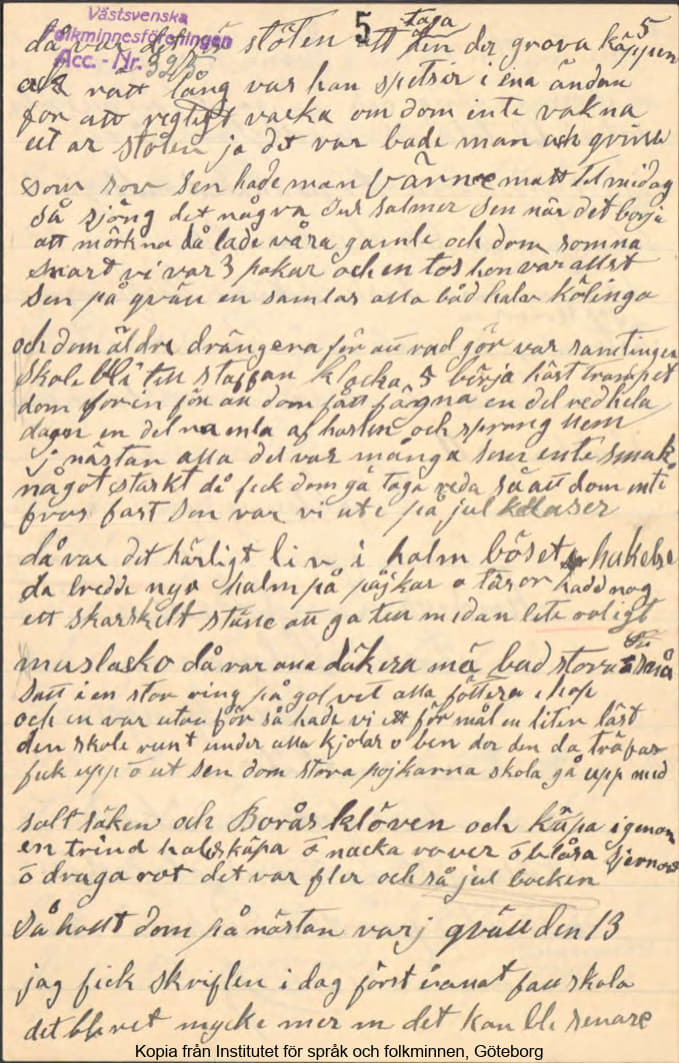 Västsvenska
Folkminnesföreningen
Acc. - Nr. 3925
5
5
taga
då var det ur stolen att den der grova käppen
och rätt lång var han spetsir i ena ändan
for att regtigt vacka om dom inte vakna
ut ar stolen ja det var bade man och qvina
som sov sen hade man värnce matt til midag
så sjöng det någva salmer sen när det borja
att mörkna då lade våra gamle och dom somna
snart vi var 3 pokar och en tos hon var allst
sen på qväll en samlas alla båd halv kälinga
och dom äldre drängera för att rad gör var samtingen
skole bli till staffan klocka 5 börja häst trampet
dom for in för att dom fått fägna en del red hela
dagen en del af hasten och sprang hem
j nästan alla det var många som ente smak
något starkt då fick dom gå taga reda så att dom inti
fros fast sen var vi ute på jul
då var det härligt liv i halm böset hukelse
da bredde nya halm på pojkar o täsor hadd nog
ett skarskilt ställe att ga till medan lite roligt
muslasko då var ana mä bad stora o små
satt i en stor ring på golvet alla föttera i hop
och en var utan för så hade vi ett för mål en liten läst
den skole runt under alla kjolar o ben der den da träfar
fick upp o ut sen dom stora pojkarna skola gå upp med
salt säken och Borås klöven och käpa igenom
en trind halskäpa o nacka rover o blåsa sjernor
o draga rot det var fler och så jul bocken
Så hollt dom på nästan varj qväll den 13
jag fick skriften i dag först i anat fall skola
det blevet mycke mer m det kan bli senare
Kopia från Institutet för språk och folkminnen, Göteborg